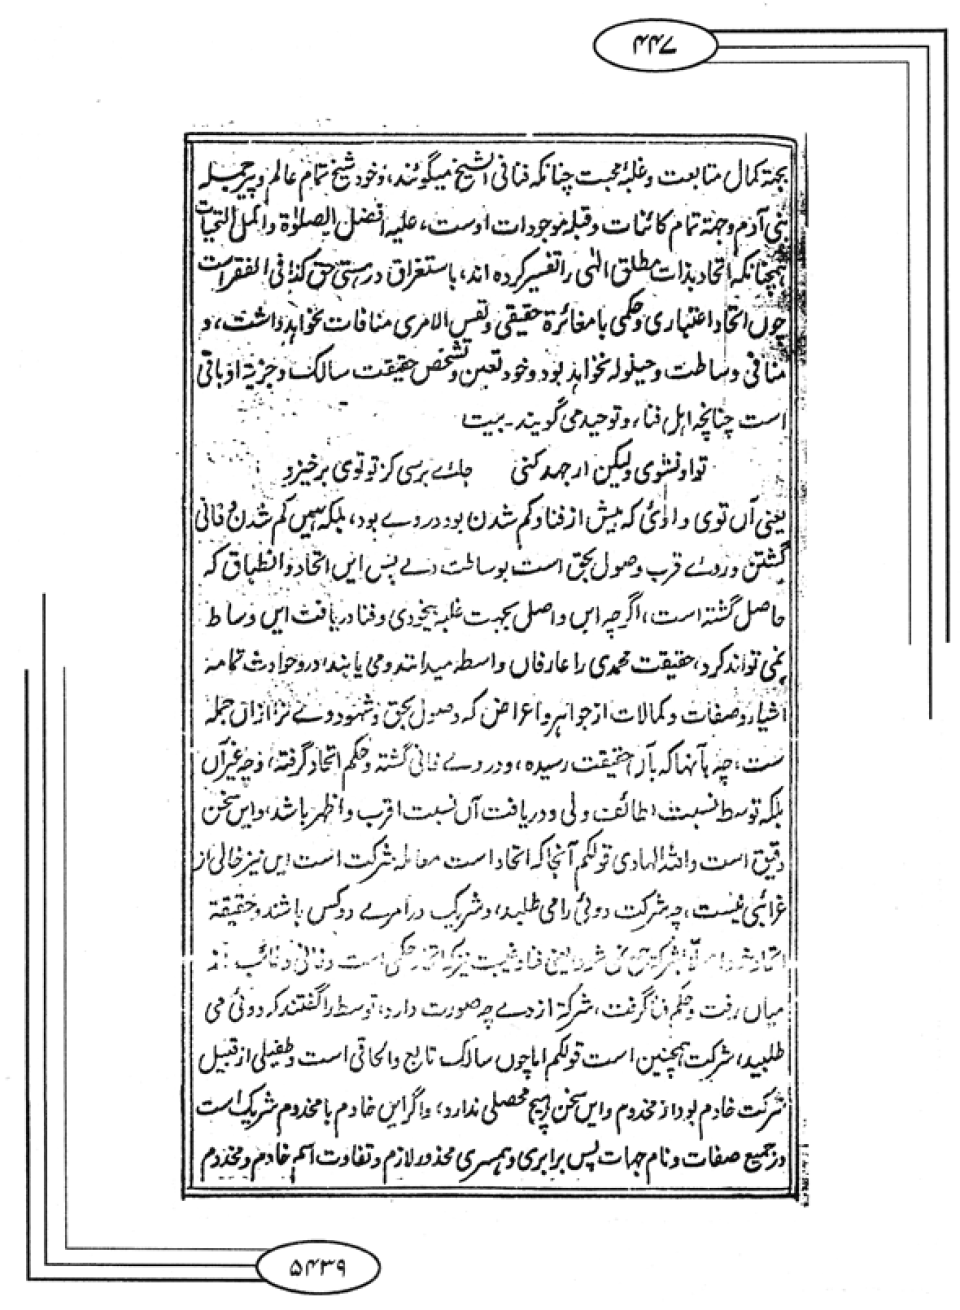 ۴۴۷
بجهة کمال متابعت و غلبهٔ محبت چنانکه فنا فی الشیخ میگویند، و خود شیخ تمام عالم و پیر جمله
بنی آدم وجهة تمام کائنات و قبله موجودات اوست، علیه افضل الصلوٰة و اکمل التحیات
همچنانکه اتحاد بذات مطلق الٰهی را تفسیر کرده اند، باستغراق در هستی حق کذا فی الفقرات
چوں اتحاد اعتباری و حکمی با مغائرة حقیقی و نفس الامری منافات نخواهد داشت، و
منافی وساطت و حیلوله نخواهد بود و خود تعین و تشخص حقیقت سالک و جزیة او باقی
است چنانچه اہل فناء و توحید می گویند ۔ بیت
تو او نشوی ولیکن ار جهد کنی جائے برسی کز تو توی برخیزد
یعنی آں توی و اوئی که پیش از فنا و گم شدن بود در وے بود، بلکه ہمیں گم شدن و فانی
گشتن در وے قرب و وصول بحق است بوساطت وے پس ایں اتحاد و انطباق که
حاصل گشته است، اگرچه ایں واصل بجهت غلبهٔ بیخودی و فنا دریافت ایں وساط
نمی تواند کرد، حقیقت محمدی را عارفاں واسطه میدانند و می یابند، در وحوادث تمامه
اشیاء و صفات و کمالات از جواهر و اعراض که وصول بحق و شهود وے نیز ازاں جمله
ست، چه بآنها که بآں حقیقت رسیده، و در وے فانی گشته و حکم اتحاد گرفته، و چه غیر آں
بلکه توسط نسبت بطائفت ولی و دریافت آں نسبت اقرب و اظهر باشد، و ایں سخن
دقیق است والله الهادی قولکم آنجا که اتحاد است معامله شرکت است ایں نیز خالی از
غرائبی نیست، چه شرکت دوئی را می طلبد، و شریک در امرے دو کس باشند و حقیقة
میاں رفت و حکم فنا گرفت، شرکة از وے چه صورت دارد، توسط را گفتند که دوئی می
طلبید، شرکت همچنین است قولکم اما چوں سالک تابع و الحاقی است و طفیلی از قبیل
شرکت خادم بود از مخدوم و ایں سخن هیچ محصلی ندارد، و اگر ایں خادم با مخدوم شریک است
در جمیع صفات و نام جهات پس برابری و همسری محذور لازم و تفاوت اسم خادم و مخدوم
۵۴۳۹